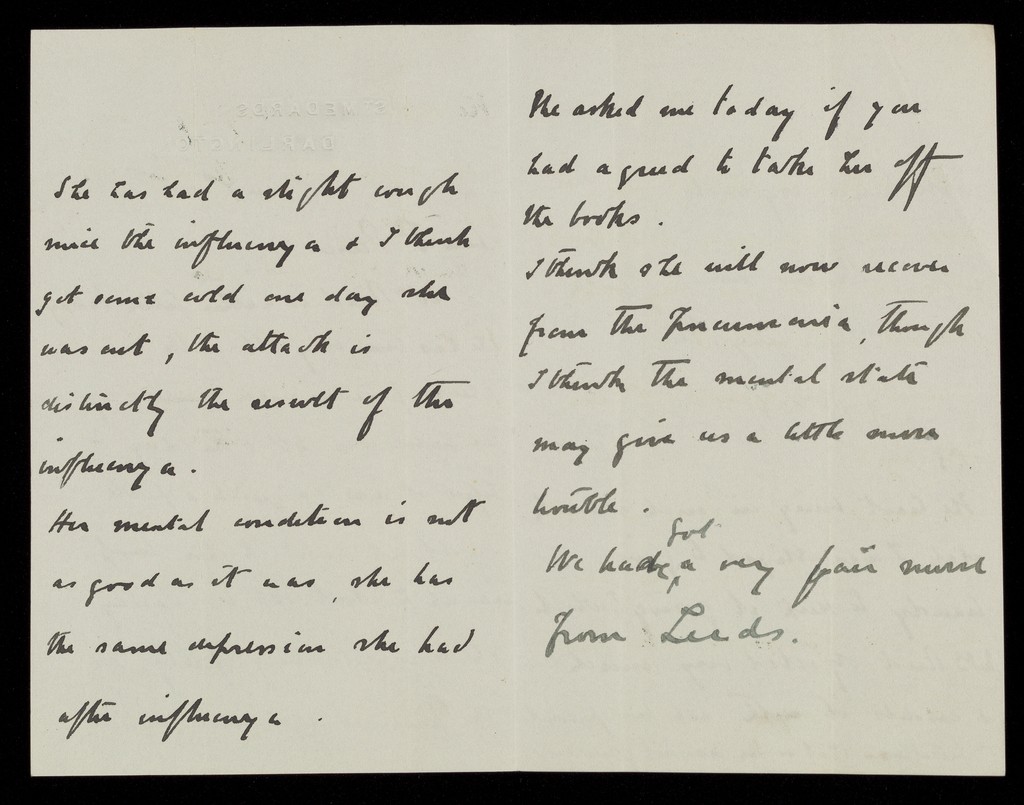 She has had a slight cough
since the influenza & I think
got some cold one day she
was out, the attack is
distinctly the result of the
influenza.
Her mental condition is not
as good as it was, she has
the same depression she had
after influenza.
She asked me today if you
had agreed to take her off
the books.
I think she will now recover
from the Pneumonia, though
I think the mental state
may give us a little more
trouble.
got
We have a very fair nurse
from Leeds.
ST MEDARDS
DARLINGTON